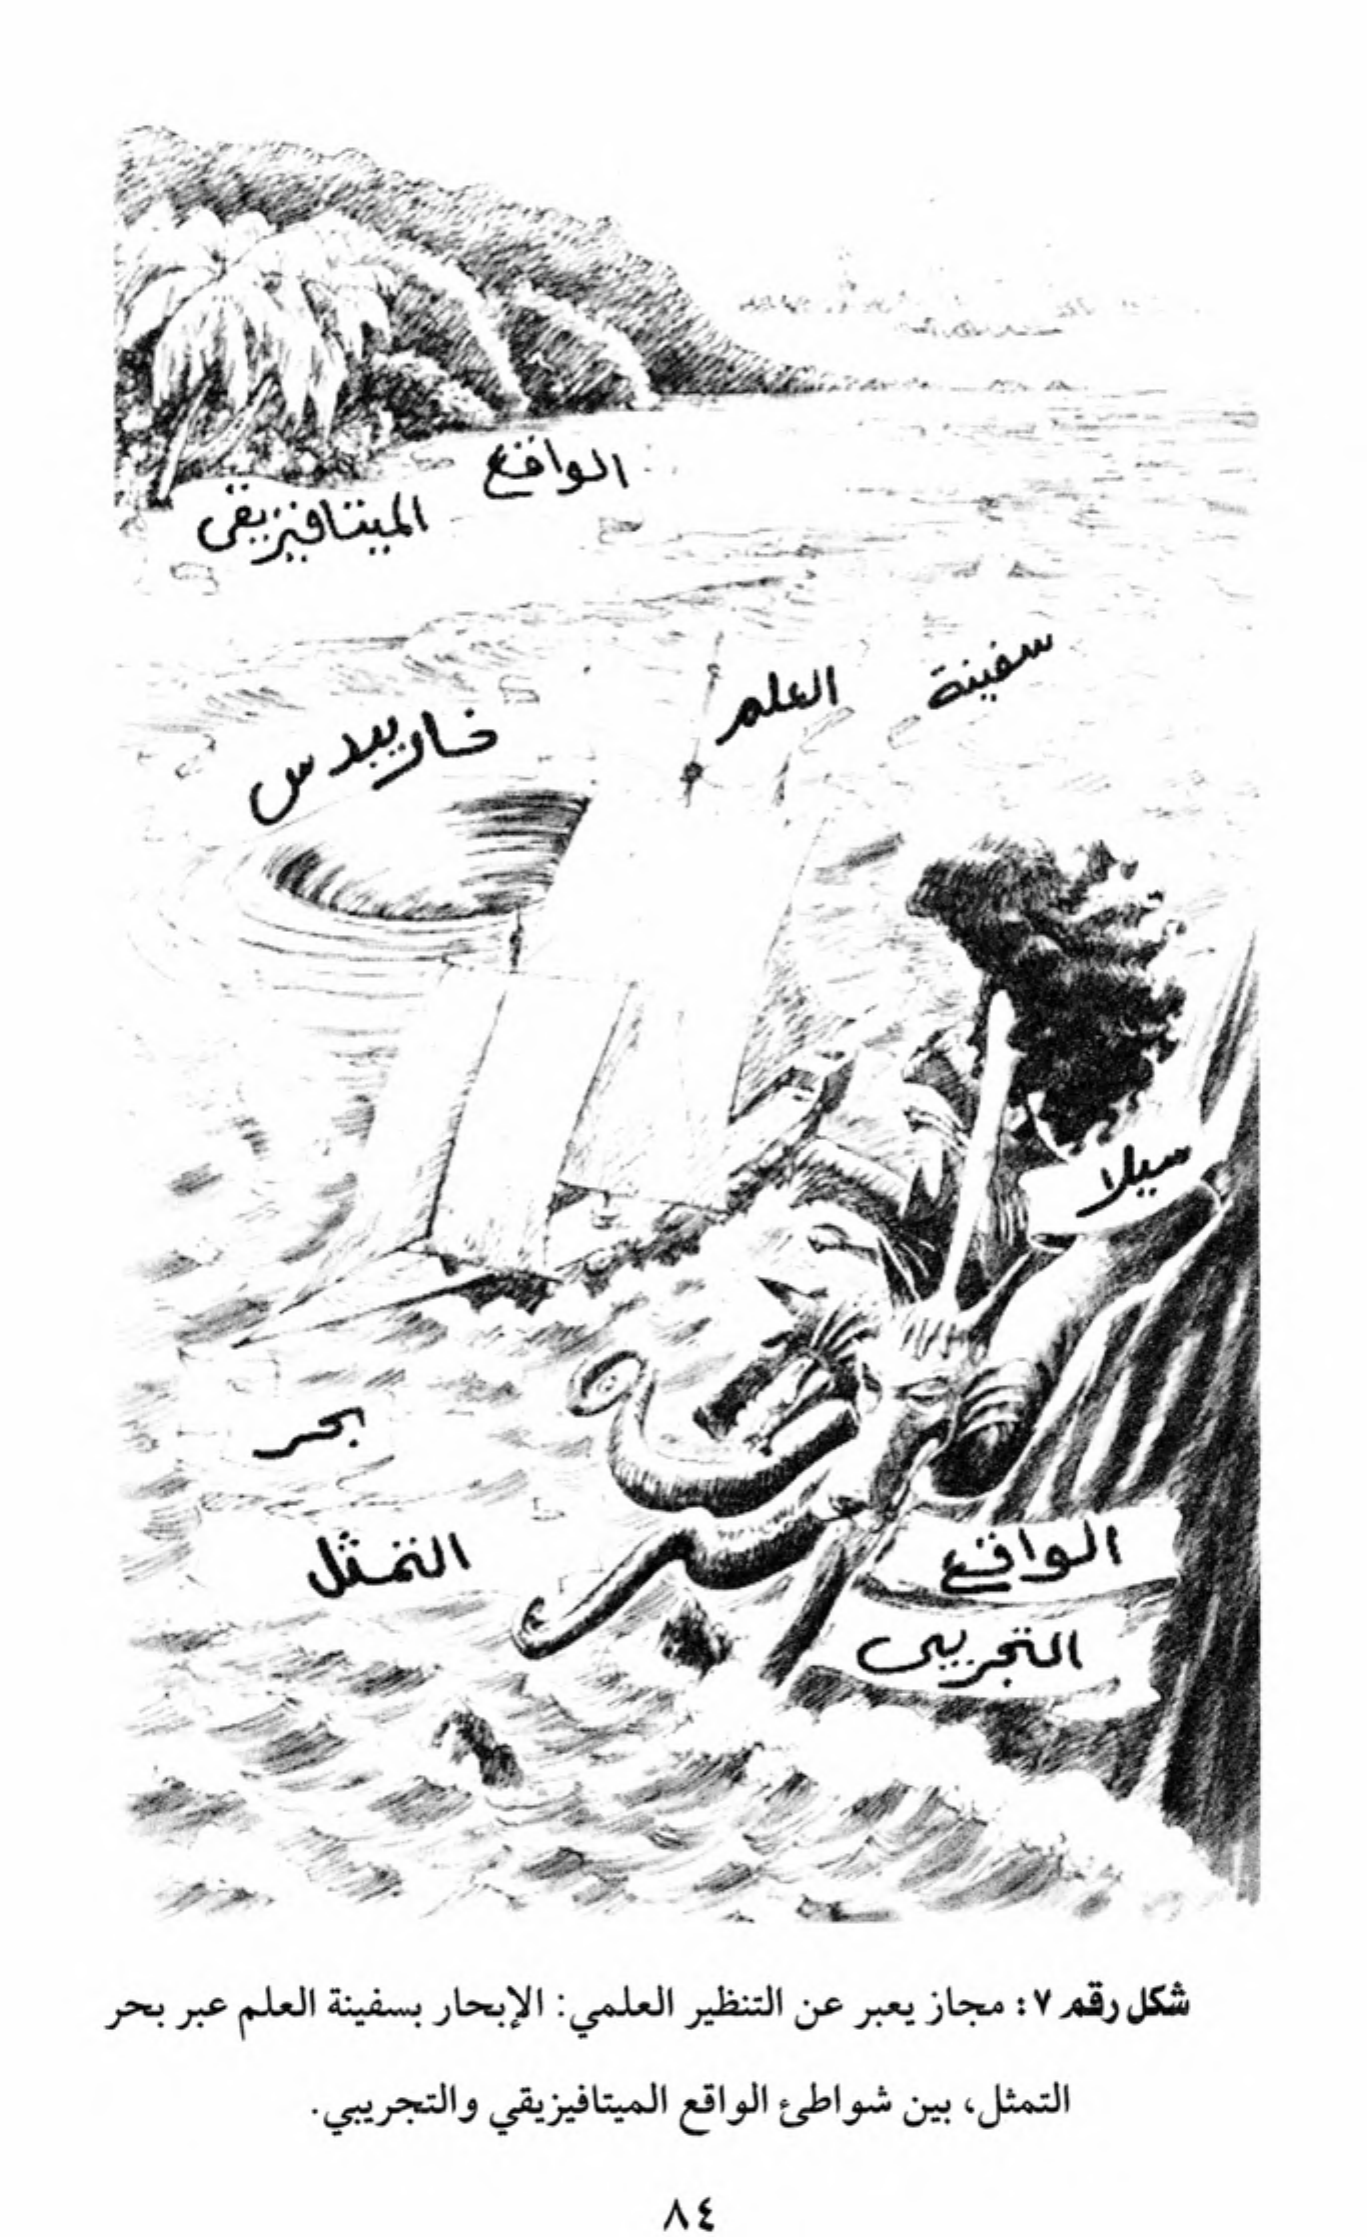 الواقع
الميتافيزيقي
سفينة العلم
خاريبدس
سيلا
بحر
التمثل
الواقع
التجريبي
شكل رقم ٧: مجاز يعبر عن التنظير العلمي: الإبحار بسفينة العلم عبر بحر
التمثل، بين شواطئ الواقع الميتافيزيقي والتجريبي.
٨٤